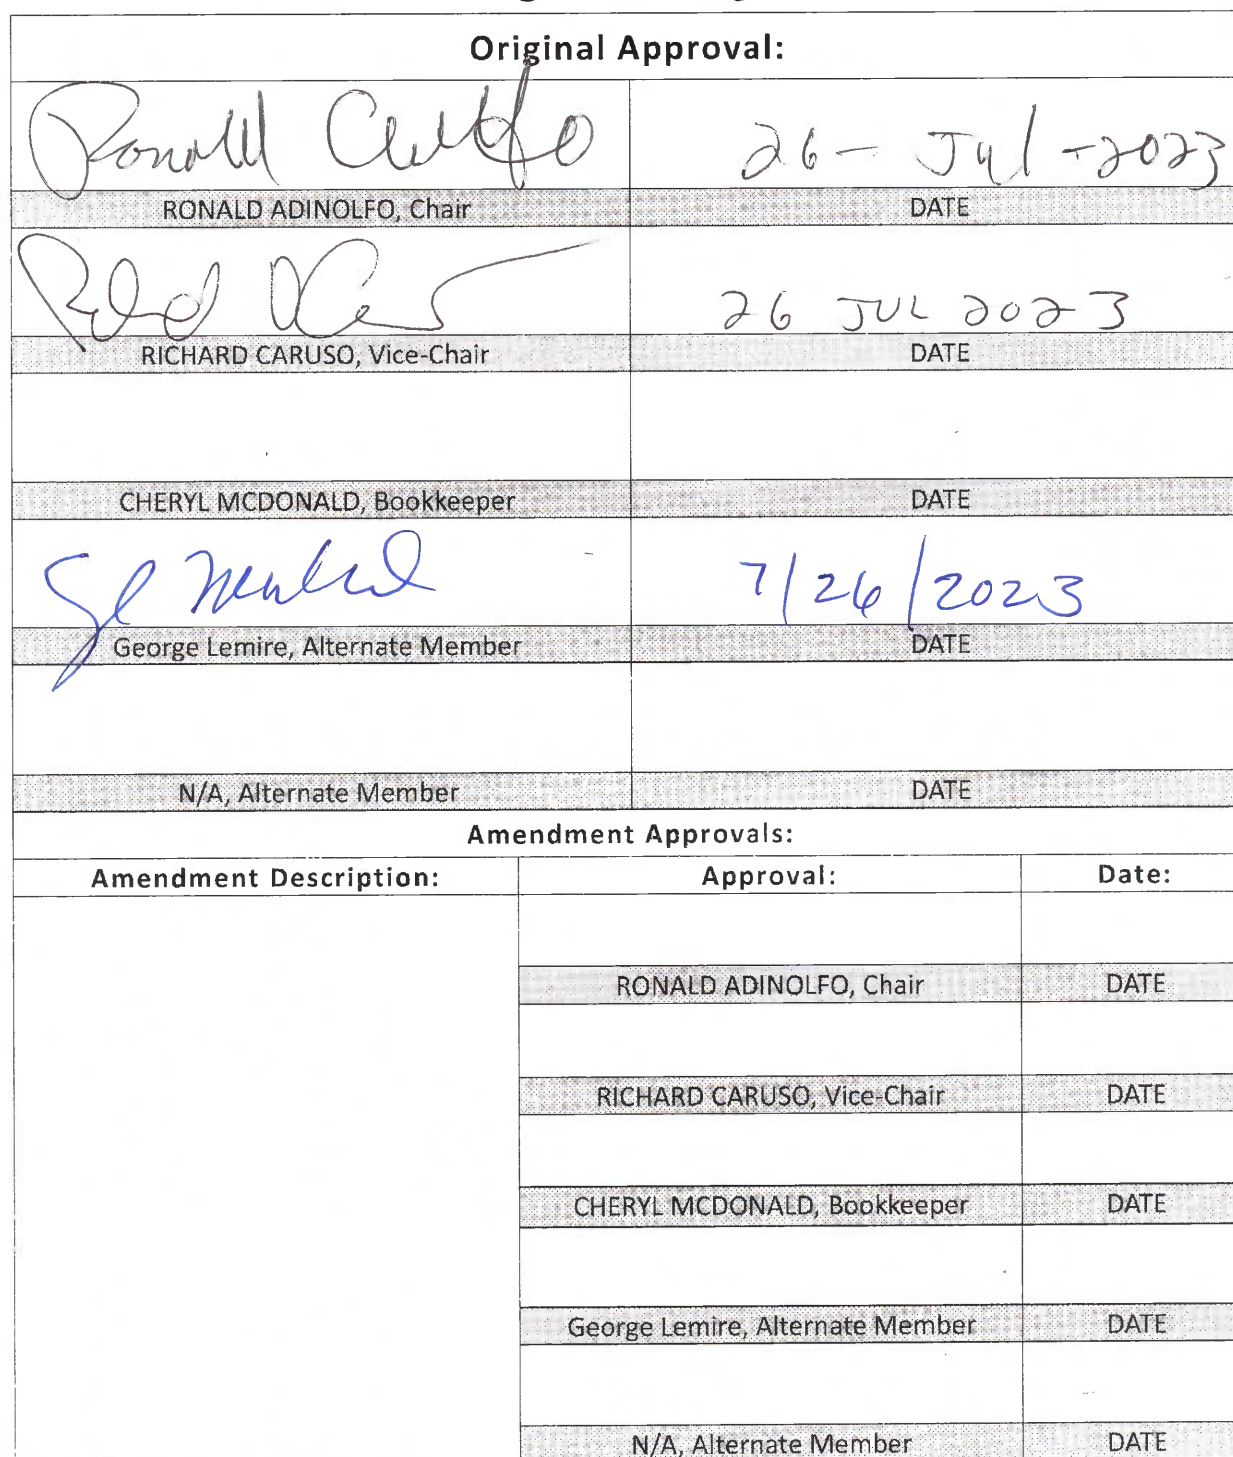 Original Approval:
Ronald 26 - Jul - 2023
RONALD ADINOLFO, Chair DATE
26 JUL 2023
RICHARD CARUSO, Vice-Chair DATE
CHERYL MCDONALD, Bookkeeper DATE
7/26/2023
George Lemire, Alternate Member DATE
N/A, Alternate Member DATE
Amendment Approvals:
Amendment Description: Approval: Date:
RONALD ADINOLFO, Chair DATE
RICHARD CARUSO, Vice-Chair DATE
CHERYL MCDONALD, Bookkeeper DATE
George Lemire, Alternate Member DATE
N/A, Alternate Member DATE